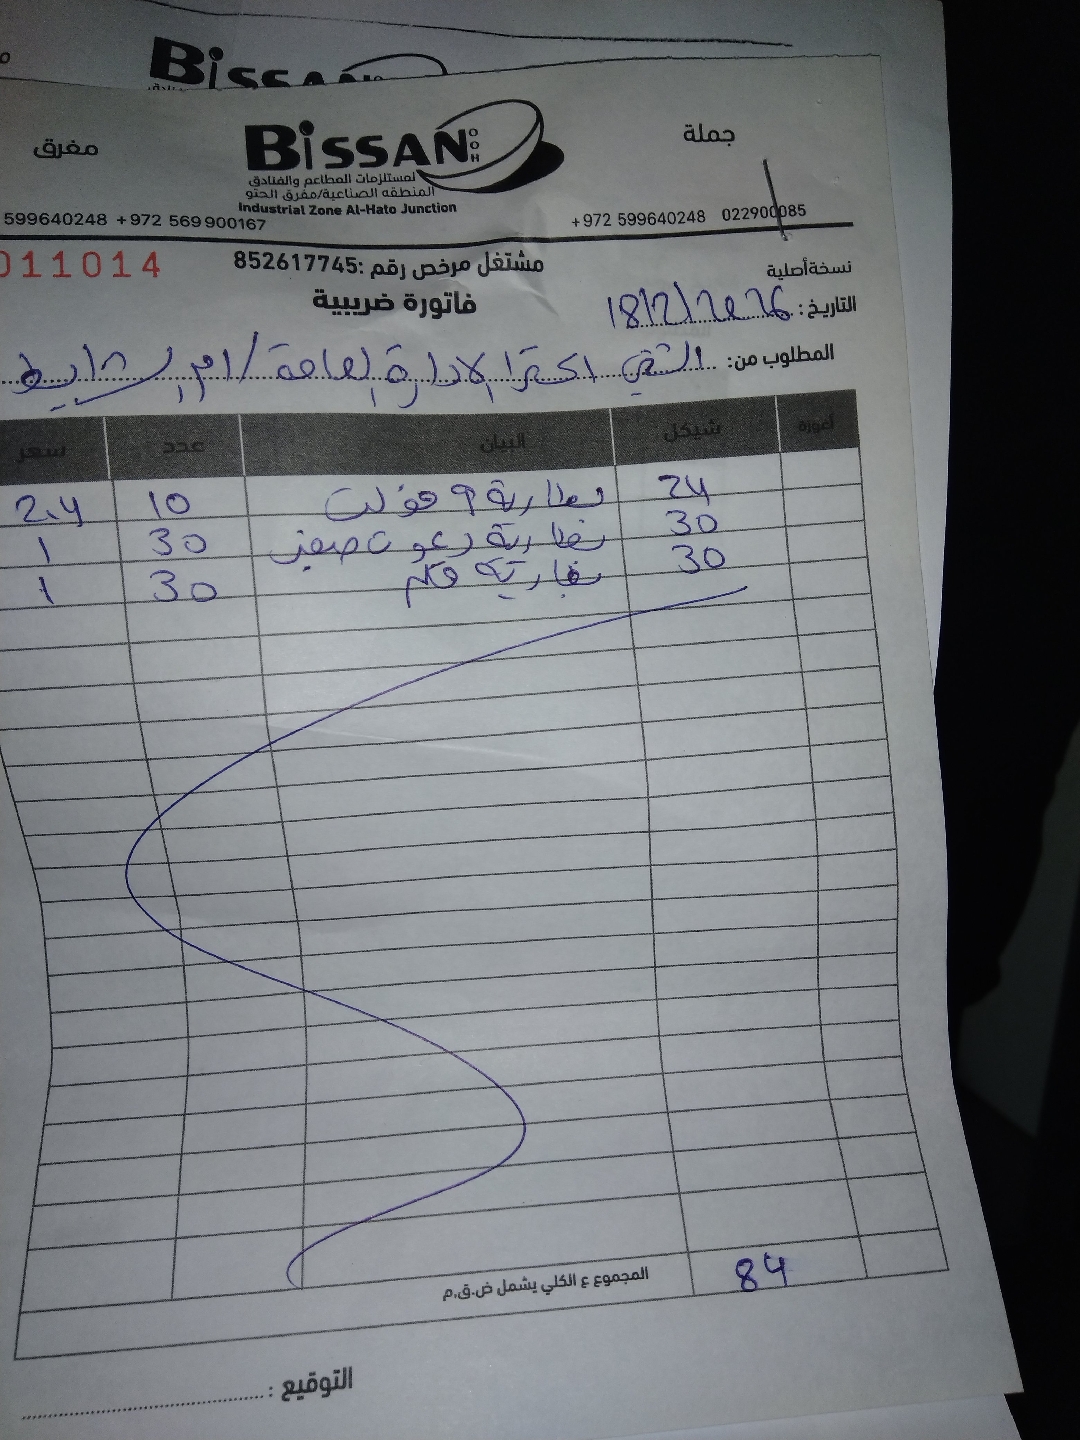 BiSSAN
جملة
BiSSAN
مفرق
لمستلزمات المطاعم والفنادق
المنطقه الصناعية/مفرق الحتو
Industrial Zone Al-Hato Junction
+972 599640248 022900085
599640248 +972 569900167
نسخة أصلية
مشتغل مرخص رقم :852617745
011014
التاريخ: 18/2/2026
فاتورة ضريبية
المطلوب من: الادارة العامة /
أغورة شيكل البيان عدد سعر
24 بطارية 9 فولت 10 2.4
30 بطارية 30 1
30 بطارية قلم 30 1
المجموع ع الكلي يشمل ض.ق.م 84
التوقيع :